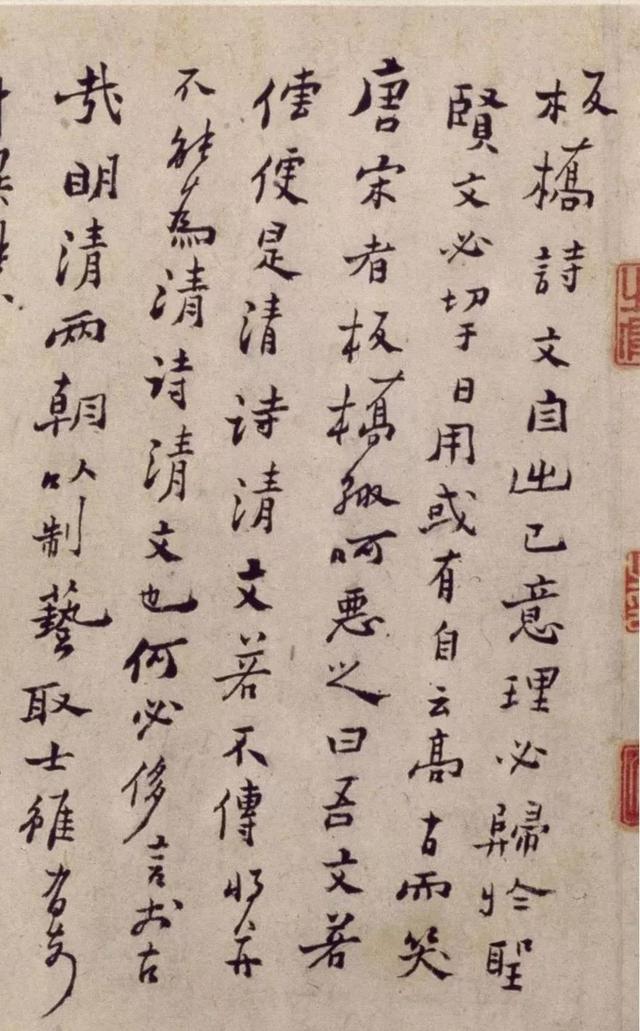 板橋詩文自出己意理必歸於聖
賢文必切于日用或有自云高古而
唐宋者板橋輒呵惡之曰吾文若
傳便是清詩清文若不傳將并
不能為清詩清文也何必侈言前古
哉明清兩朝以制藝取士雖有奇